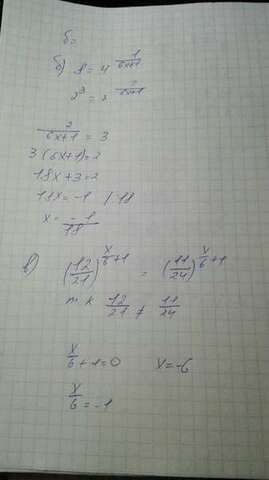 б=
б) 8 = 4^{\frac{1}{6x+1}}
2^3 = 2^{\frac{2}{6x+1}}
\frac{2}{6x+1} = 3
3(6x+1)=2
18x+3=2
18x=-1 /:18
x= -\frac{1}{18}
в) (\frac{12}{21})^{\frac{x}{6}+1} = (\frac{11}{24})^{\frac{x}{6}+1}
т.к \frac{12}{21} ≠ \frac{11}{24}
\frac{x}{6}+1=0 x=-6
\frac{x}{6}=-1